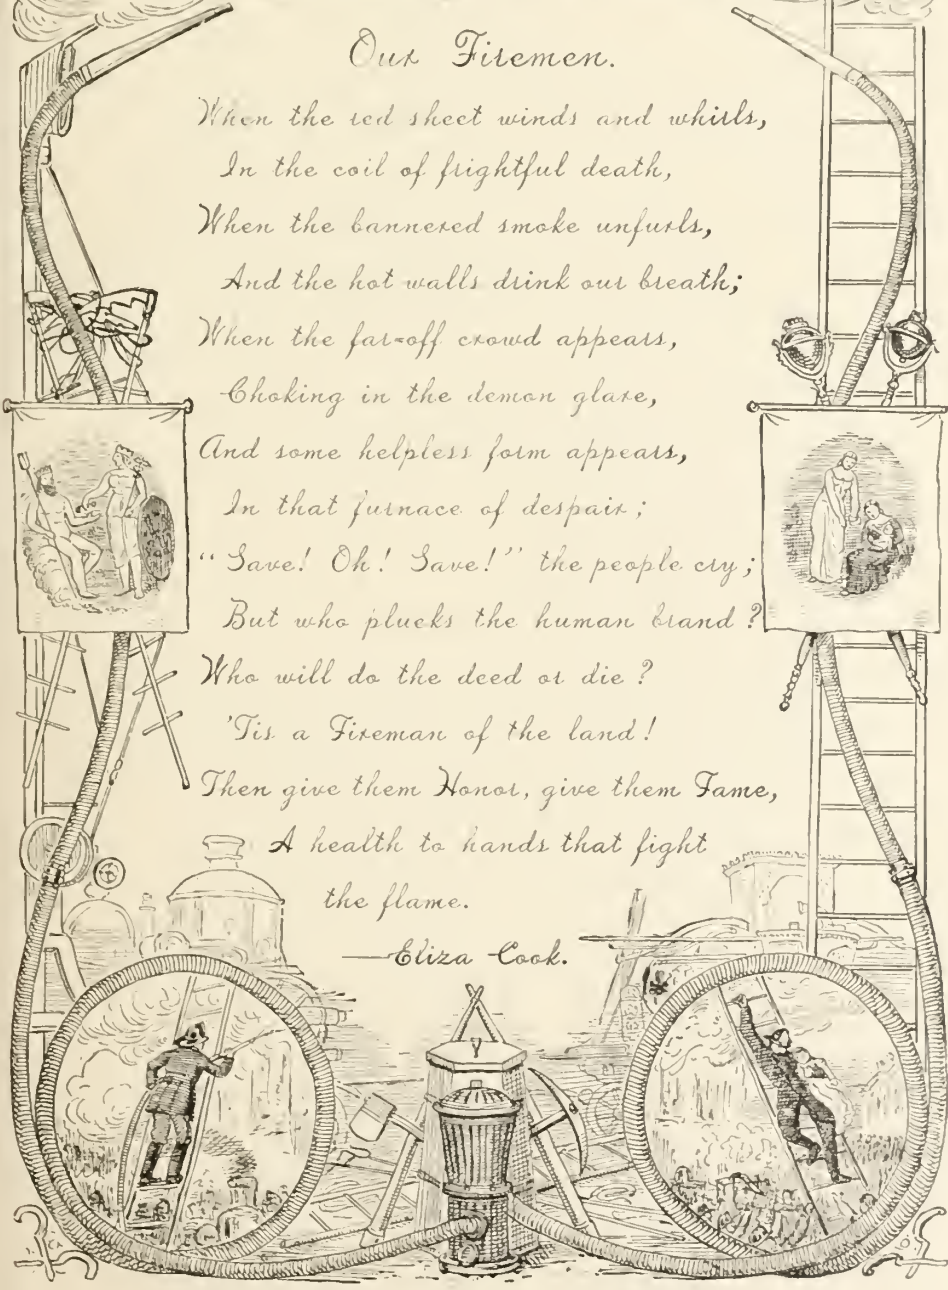 Our Firemen.
When the red sheet winds and whirls,
In the coil of frightful death,
When the bannered smoke unfurls,
And the hot walls drink our breath;
When the far-off crowd appears,
Choking in the demon glare,
And some helpless form appears,
In that furnace of despair;
"Save! Oh! Save!" the people cry;
But who plucks the human brand?
Who will do the deed or die?
'Tis a Fireman of the land!
Then give them Honor, give them Fame,
A health to hands that fight
the flame.
—Eliza Cook.